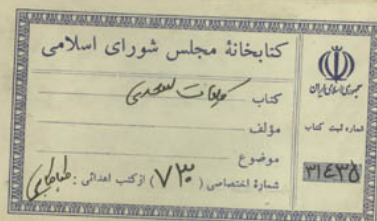 کتابخانهٔ مجلس شورای اسلامی
کتاب کلیات سعدی
مؤلف
موضوع
شمارهٔ اختصاصی (۷۳) از کتب اهدائی : طباطبائی
جمهوری اسلامی ایران
شماره ثبت کتاب
۳۱۴۳۵